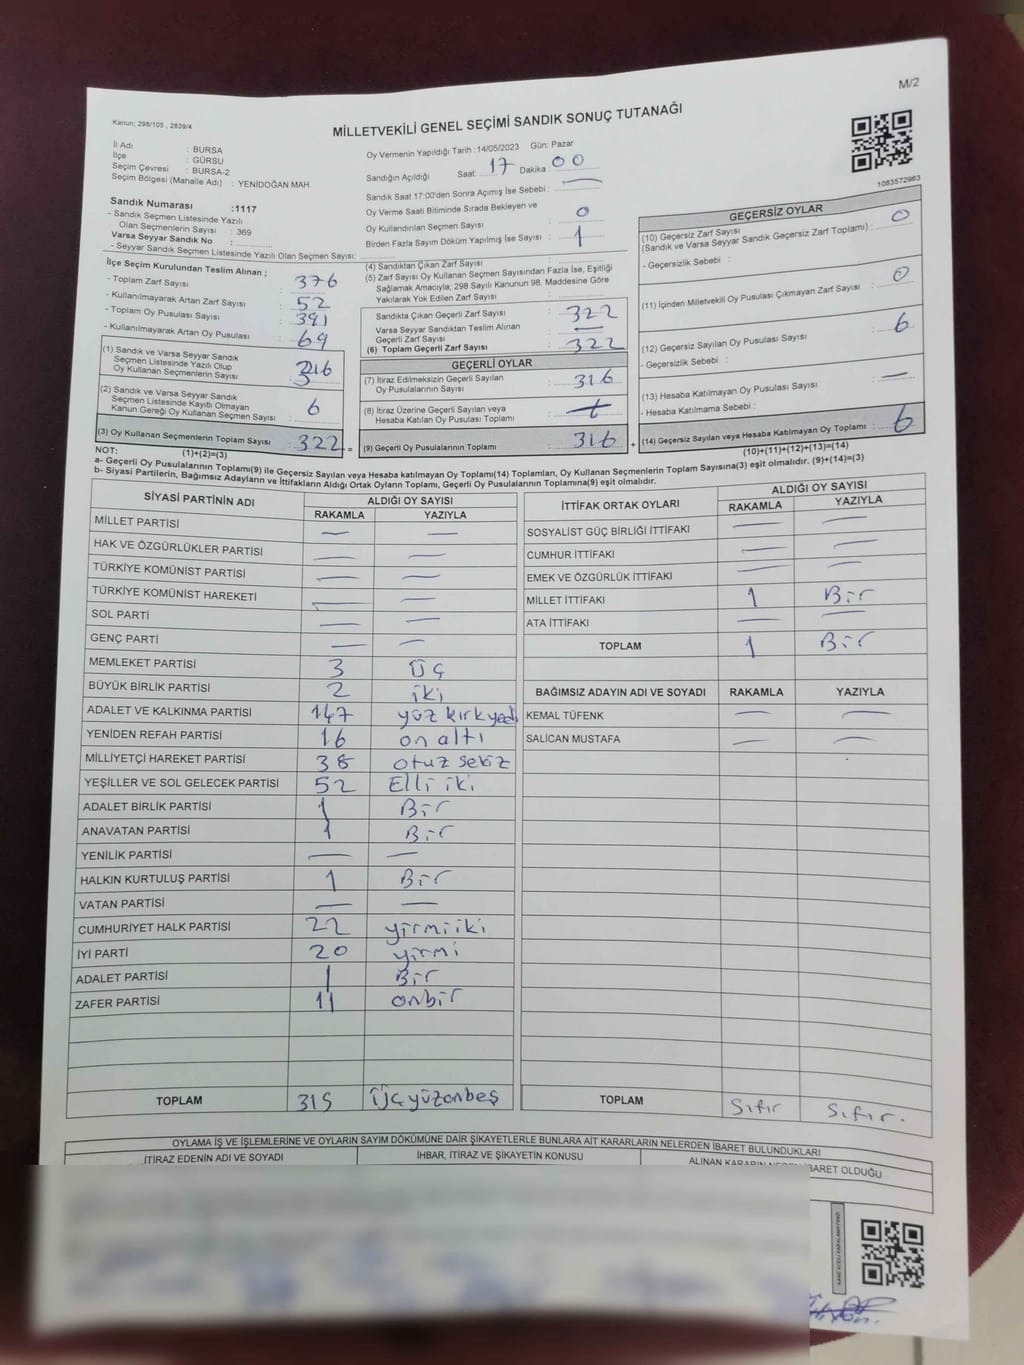 M/2
Kanun; 298/105 , 2839/4
MİLLETVEKİLİ GENEL SEÇİMİ SANDIK SONUÇ TUTANAĞI
İl Adı : BURSA
İlçe : GÜRSU
Seçim Çevresi : BURSA-2
Seçim Bölgesi (Mahalle Adı) : YENİDOĞAN MAH.
Sandık Numarası :1117
- Sandık Seçmen Listesinde Yazılı
Olan Seçmenlerin Sayısı : 369
Varsa Seyyar Sandık No :
- Seyyar Sandık Seçmen Listesinde Yazılı Olan Seçmen Sayısı:
Oy Vermenin Yapıldığı Tarih : 14/05/2023 Gün: Pazar
Sandığın Açıldığı Saat: 17 Dakika: 00
Sandık Saat 17:00'den Sonra Açımış İse Sebebi : —
Oy Verme Saati Bitiminde Sırada Bekleyen ve
Oy Kullandırılan Seçmen Sayısı : 0
Birden Fazla Sayım Döküm Yapılmış İse Sayısı : 1
1083572963
İlçe Seçim Kurulundan Teslim Alınan ;
- Toplam Zarf Sayısı : 376
- Kullanılmayarak Artan Zarf Sayısı : 52
- Toplam Oy Pusulası Sayısı : 391
- Kullanılmayarak Artan Oy Pusulası : 69
(1) Sandık ve Varsa Seyyar Sandık
Seçmen Listesinde Yazılı Olup
Oy Kullanan Seçmenlerin Sayısı : 316
(2) Sandık ve Varsa Seyyar Sandık
Seçmen Listesinde Kayıtlı Olmayan
Kanun Gereği Oy Kullanan Seçmen Sayısı : 6
(3) Oy Kullanan Seçmenlerin Toplam Sayısı : 322 =
(4) Sandıktan Çıkan Zarf Sayısı :
(5) Zarf Sayısı Oy Kullanan Seçmen Sayısından Fazla İse, Eşitliği
Sağlamak Amacıyla, 298 Sayılı Kanunun 98. Maddesine Göre
Yakılarak Yok Edilen Zarf Sayısı :
Sandıkta Çıkan Geçerli Zarf Sayısı : 322
Varsa Seyyar Sandıktan Teslim Alınan
Geçerli Zarf Sayısı : —
(6) Toplam Geçerli Zarf Sayısı : 322
GEÇERLİ OYLAR
(7) İtiraz Edilmeksizin Geçerli Sayılan
Oy Pusulalarının Sayısı : 316
(8) İtiraz Üzerine Geçerli Sayılan veya
Hesaba Katılan Oy Pusulası Toplamı :
(9) Geçerli Oy Pusulalarının Toplamı : 316 +
GEÇERSİZ OYLAR
(10) Geçersiz Zarf Sayısı
(Sandık ve Varsa Seyyar Sandık Geçersiz Zarf Toplamı) : 0
- Geçersizlik Sebebi :
(11) İçinden Milletvekili Oy Pusulası Çıkmayan Zarf Sayısı : 0
(12) Geçersiz Sayılan Oy Pusulası Sayısı : 6
- Geçersizlik Sebebi :
(13) Hesaba Katılmayan Oy Pusulası Sayısı : —
- Hesaba Katılmama Sebebi :
(14) Geçersiz Sayılan veya Hesaba Katılmayan Oy Toplamı : 6
NOT: (1)+(2)=(3) (10)+(11)+(12)+(13)=(14)
a- Geçerli Oy Pusulalarının Toplamı(9) ile Geçersiz Sayılan veya Hesaba katılmayan Oy Toplamı(14) Toplamları, Oy Kullanan Seçmenlerin Toplam Sayısına(3) eşit olmalıdır. (9)+(14)=(3)
b- Siyasi Partilerin, Bağımsız Adayların ve İttifakların Aldığı Ortak Oyların Toplamı, Geçerli Oy Pusulalarının Toplamına(9) eşit olmalıdır.
SİYASİ PARTİNİN ADI ALDIĞI OY SAYISI
RAKAMLA YAZIYLA
MİLLET PARTİSİ — —
HAK VE ÖZGÜRLÜKLER PARTİSİ — —
TÜRKİYE KOMÜNİST PARTİSİ — —
TÜRKİYE KOMÜNİST HAREKETİ — —
SOL PARTİ — —
GENÇ PARTİ — —
MEMLEKET PARTİSİ 3 üç
BÜYÜK BİRLİK PARTİSİ 2 iki
ADALET VE KALKINMA PARTİSİ 147 yüz kırk yedi
YENİDEN REFAH PARTİSİ 16 on altı
MİLLİYETÇİ HAREKET PARTİSİ 38 otuz sekiz
YEŞİLLER VE SOL GELECEK PARTİSİ 52 Elli iki
ADALET BİRLİK PARTİSİ 1 Bir
ANAVATAN PARTİSİ 1 Bir
YENİLİK PARTİSİ — —
HALKIN KURTULUŞ PARTİSİ 1 Bir
VATAN PARTİSİ — —
CUMHURİYET HALK PARTİSİ 22 yirmi iki
İYİ PARTİ 20 yirmi
ADALET PARTİSİ 1 Bir
ZAFER PARTİSİ 11 onbir
TOPLAM 315 üçyüzonbeş
İTTİFAK ORTAK OYLARI ALDIĞI OY SAYISI
RAKAMLA YAZIYLA
SOSYALİST GÜÇ BİRLİĞİ İTTİFAKI — —
CUMHUR İTTİFAKI — —
EMEK VE ÖZGÜRLÜK İTTİFAKI — —
MİLLET İTTİFAKI 1 Bir
ATA İTTİFAKI —
TOPLAM 1 Bir
BAĞIMSIZ ADAYIN ADI VE SOYADI RAKAMLA YAZIYLA
KEMAL TÜFENK — —
SALİCAN MUSTAFA — —
TOPLAM Sıfır Sıfır.
OYLAMA İŞ VE İŞLEMLERİNE VE OYLARIN SAYIM DÖKÜMÜNE DAİR ŞİKAYETLERLE BUNLARA AİT KARARLARIN NELERDEN İBARET BULUNDUKLARI
İTİRAZ EDENİN ADI VE SOYADI İHBAR, İTİRAZ VE ŞİKAYETİN KONUSU ALINAN KARARIN NEDEN İBARET OLDUĞU